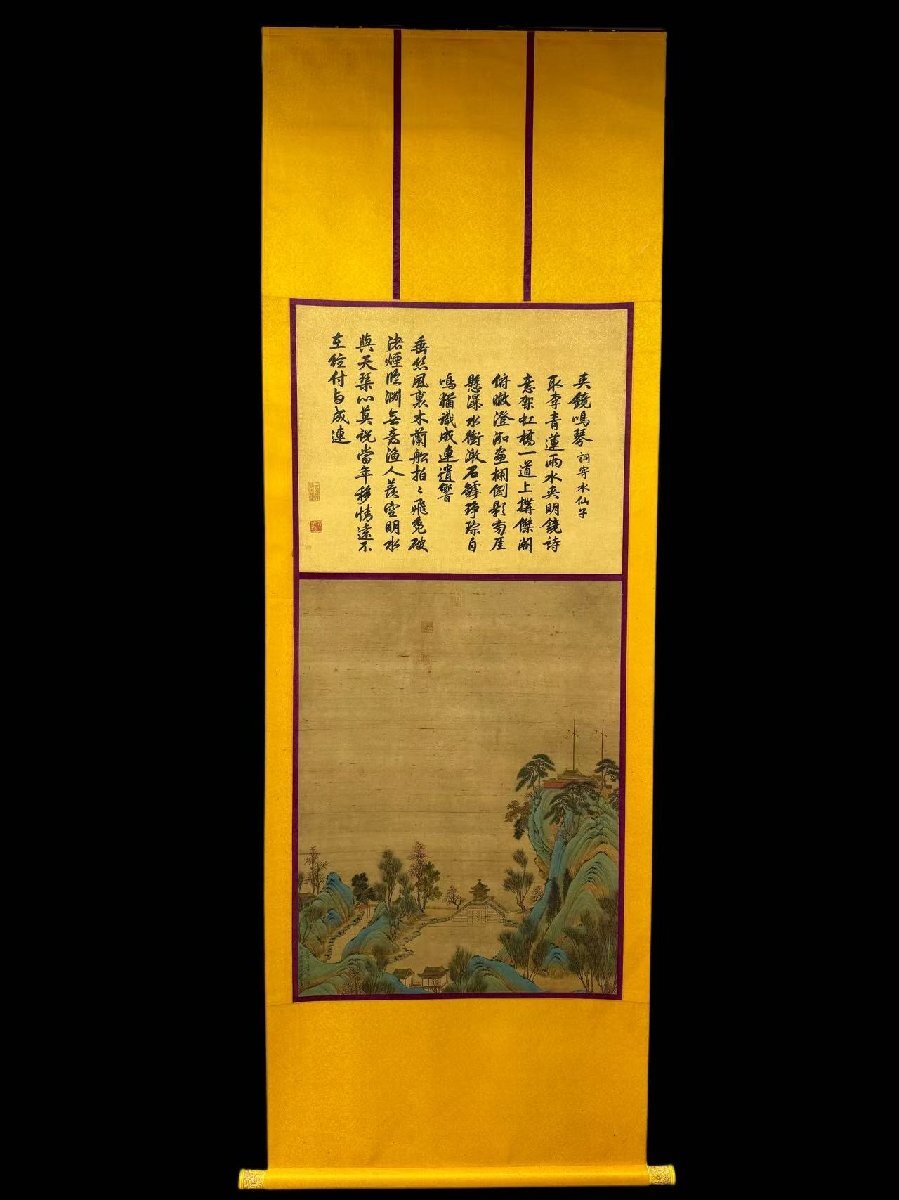 夾鏡鳴琴 詞寄水仙子
取李青蓮兩水夾明鏡詩
意架虹橋一道上構傑閣
俯瞰澄泓畫欄倒影旁崖
懸瀑水衝激石罅琤琮自
鳴猶識成連遺響
垂絲風裏木蘭船拍々飛鳧破
渚煙臨淵無意漁人羨空明水
與天琴心莫說當年移情遠不
在絃付与成連